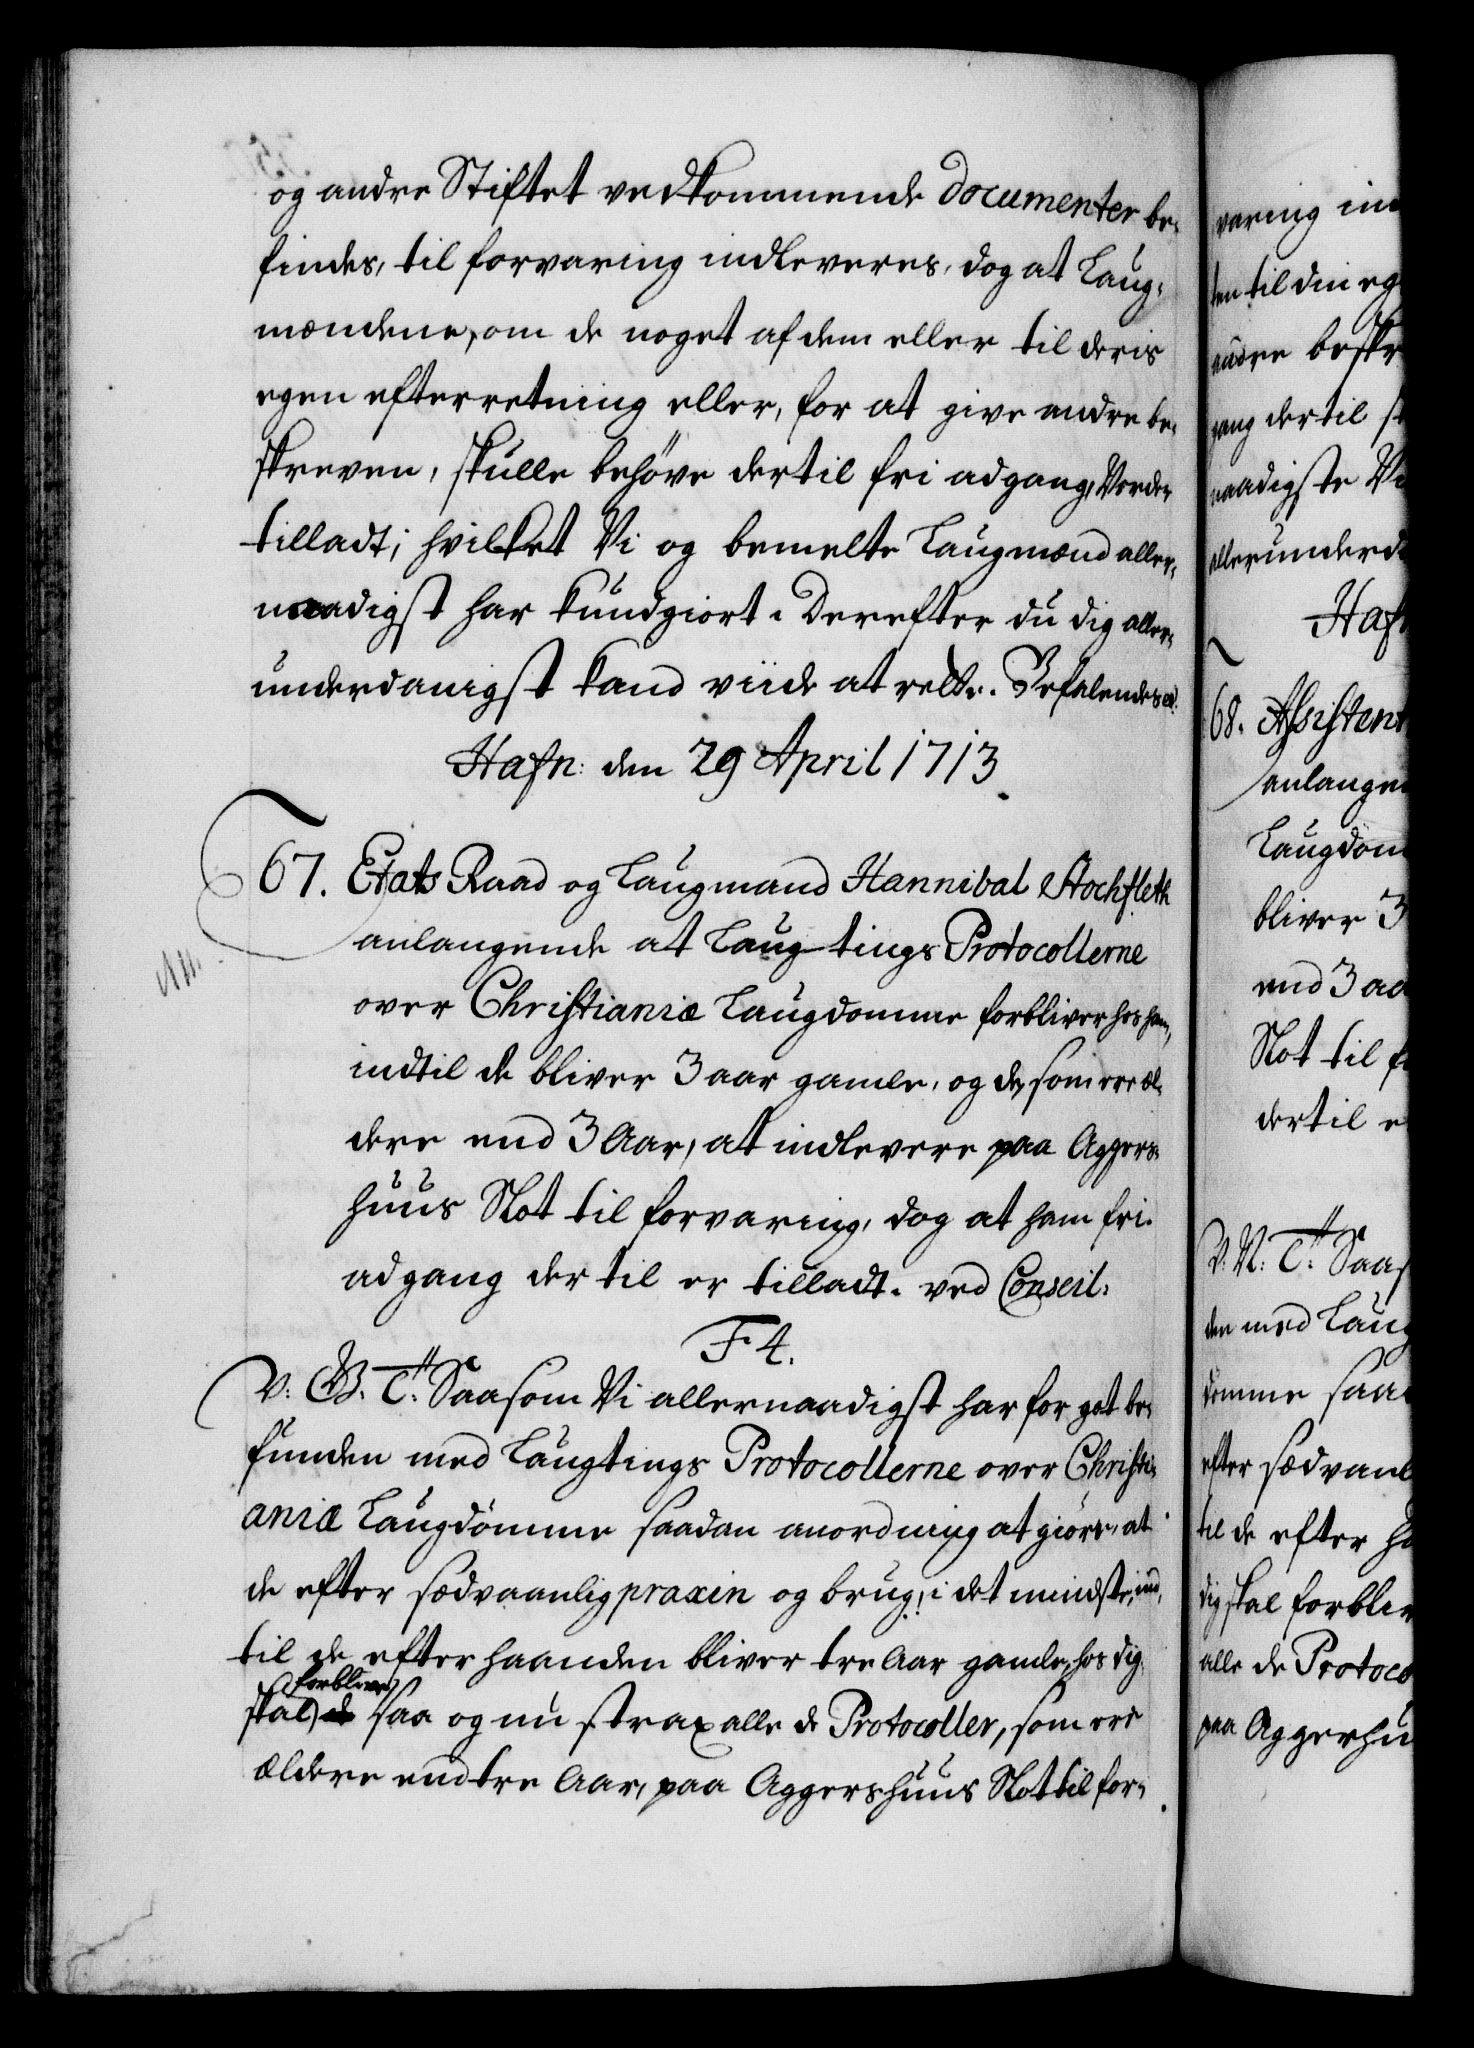 og andre Stiftet vedkommende documenter be-
findes, til forvaring indleveres, dog at Laug-
mændene, om de noget af dem eller til deris
egen efterretning eller, for at give andre be-
skreven, skulle behöve dertil fri adgang, Vorder
tilladt; hvilket Vi og bemelte Laugmænd aller-
naadigst har kundgiort. Derefter du dig aller-
underdanigst kand viide at rette. Befalendes
Hafn: den 29 April 1713
67. Etats Raad og Laugmand Hannibal Stochfleth
anlangende at Laug-tings Protocollerne
over Christianiæ Laugdomme forbliver hos ham,
indtil de bliver 3 aar gamle, og de, som ere æl-
dere end 3 Aar, at indlevere paa Aggers-
huus Slot til forvaring, dog at ham fri
adgang der til er tilladt. ved Conseil:
F 4.
V. G. T. Saasom Vi allernaadigst har for got be-
funden med Laugtings Protocollerne over Christi-
aniæ Laugdömme saadan anordning at giöre, at
de efter sædvaanlig praxin og brug, i det mindste, ind-
til de efterhaanden bliver tre Aar gamle, hos dig
forblive
skal, saa og nu strax alle de Protocoller, som ere
ældere end tre Aar, paa Aggershuus Slot til for-
varing in
ten til din eg
andre beskr
gang dertil
naadigste Vi
allerunderd
Haf
68. Assistent
anlangen
Laugdöm
bliver 3
end 3 aa
Slot til f
dertil e
V. N. T. Saas
den med Laug
domme saa
efter sædvanl
til de efter h
dig skal forbliv
alle de Protoco
paa Aggerhu